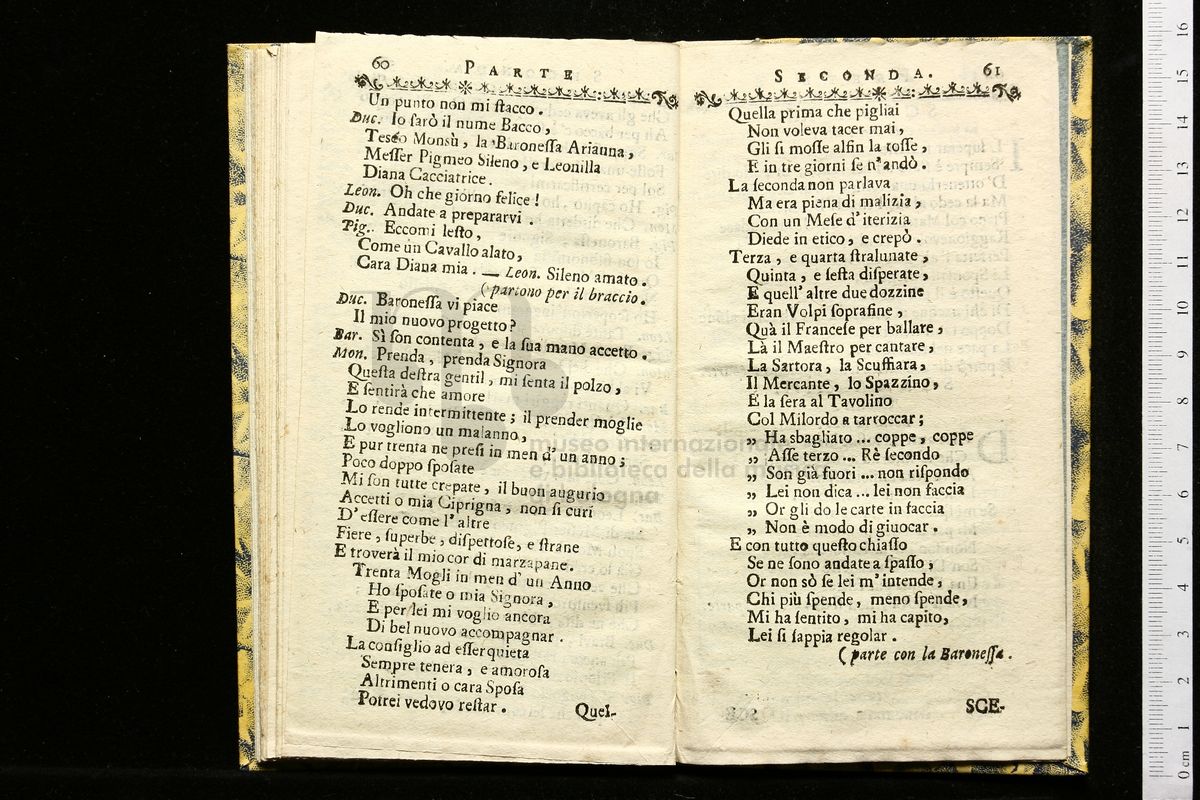 60 PARTE
Un punto non mi ſtacco.
Duc. Io ſarò il nume Bacco,
Teseo Monsù, la Baroneſſa Arianna,
Meſſer Pigmeo Sileno, e Leonilla
Diana Cacciatrice.
Leon. Oh che giorno felice!
Duc. Andate a prepararvi.
Pig. Eccomi leſto,
Come un Cavallo alato,
Cara Diana mia. — Leon. Sileno amato.
( partono per il braccio.
Duc. Baroneſſa vi piace
Il mio nuovo progetto?
Bar. Sì ſon contenta, e la ſua mano accetto.
Mon. Prenda, prenda Signora
Queſta deſtra gentil, mi ſenta il polzo,
E ſentirà che amore
Lo rende intermittente; il prender moglie
Lo vogliono un malanno,
E pur trenta ne preſi in men d'un anno;
Poco doppo ſpoſate
Mi ſon tutte crepate, il buon augurio
Accetti o mia Ciprigna, non ſi curi
D'eſſere come l'altre
Fiere, ſuperbe, diſpettoſe, e ſtrane
E troverà il mio cor di marzapane.
Trenta Mogli in men d'un Anno
Ho ſpoſate o mia Signora,
E per lei mi voglio ancora
Di bel nuovo accompagnar.
La conſiglio ad eſſer quieta
Sempre tenera, e amoroſa
Altrimenti o cara Spoſa
Potrei vedovo reſtar.
Quel-
SECONDA. 61
Quella prima che pigliai
Non voleva tacer mai,
Gli ſi moſſe alfin la toſſe,
E in tre giorni ſe n'andò.
La ſeconda non parlava
Ma era piena di malizia,
Con un Meſe d'iterizia
Diede in etico, e crepò.
Terza, e quarta ſtralunate,
Quinta, e ſeſta diſperate,
E quell'altre due dozzine
Eran Volpi ſopraſine,
Quà il Franceſe per ballare,
Là il Maeſtro per cantare,
La Sartora, la Scuffiara,
Il Mercante, lo Spazzino,
E la ſera al Tavolino
Col Milordo a tarroccar;
„ Ha sbagliato ... coppe, coppe
„ Aſſe terzo ... Rè ſecondo
„ Son già fuori ... non riſpondo
„ Lei non dica ... lei non faccia
„ Or gli do le carte in faccia
„ Non è modo di giuocar.
E con tutto queſto chiaſſo
Se ne ſono andate a ſpaſſo,
Or non sò ſe lei m'intende,
Chi più ſpende, meno ſpende,
Mi ha ſentito, mi ha capito,
Lei ſi ſappia regolar.
( parte con la Baroneſſa.
SCE-
museo internazionale
e biblioteca della musica
di bologna